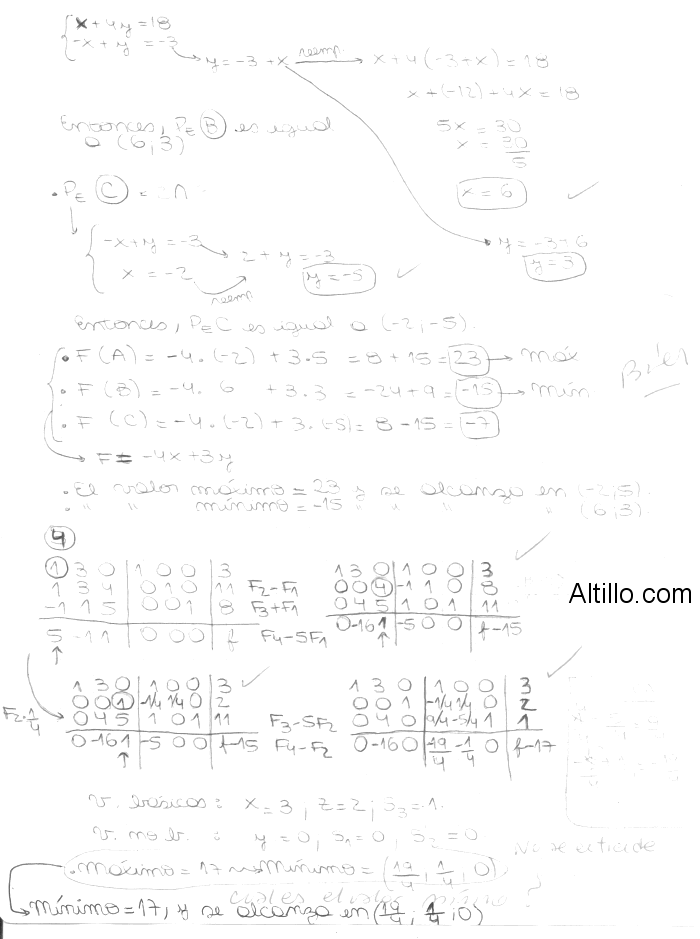 x + 4y = 18
-x + y = -3
y = -3 + x reemp. x + 4 (-3 + x) = 18
x + (-12) + 4x = 18
Entonces, PE B es igual
a (6;3)
5x = 30
x = 30/5
x = 6
• PE C =
-x + y = -3
x = -2
reemp.
2 + y = -3
y = -5
y = -3 + 6
y = 3
Entonces, PEC es igual a (-2;-5).
• F (A) = -4 . (-2) + 3 . 5 = 8 + 15 = 23 → máx
• F (B) = -4 . 6 + 3 . 3 = -24 + 9 = -15 → mín
• F (C) = -4 . (-2) + 3 . (-5) = 8 - 15 = -7
Bien
F = -4x + 3y
• El valor máximo = 23 y se alcanza en (-2;5).
• " " mínimo = -15 " " " " (6;3).
4
1 3 0 | 1 0 0 | 3
1 3 4 | 0 1 0 | 11 F2-F1
-1 1 5 | 0 0 1 | 8 F3+F1
5 -1 1 | 0 0 0 | f F4-5F1
1 3 0 | 1 0 0 | 3
0 0 4 | -1 1 0 | 8
0 4 5 | 1 0 1 | 11
0 -16 1 | -5 0 0 | f-15
Altillo.com
F2.1/4
1 3 0 | 1 0 0 | 3
0 0 1 | -1/4 1/4 0 | 2
0 4 5 | 1 0 1 | 11 F3-5F2
0 -16 1 | -5 0 0 | f-15 F4-F2
1 3 0 | 1 0 0 | 3
0 0 1 | -1/4 1/4 0 | 2
0 4 0 | 9/4 -5/4 1 | 1
0 -16 0 | -19/4 -1/4 0 | f-17
v. básicas: x = 3, z = 2; S3 = 1.
v. no b. : y = 0, S1 = 0, S2 = 0
No se entiende
• Máximo = 17 Mínimo = (19/4; 1/4; 0)
cuál es el valor mínimo?
Mínimo = 17, y se alcanza en (19/4; 1/4; 0)